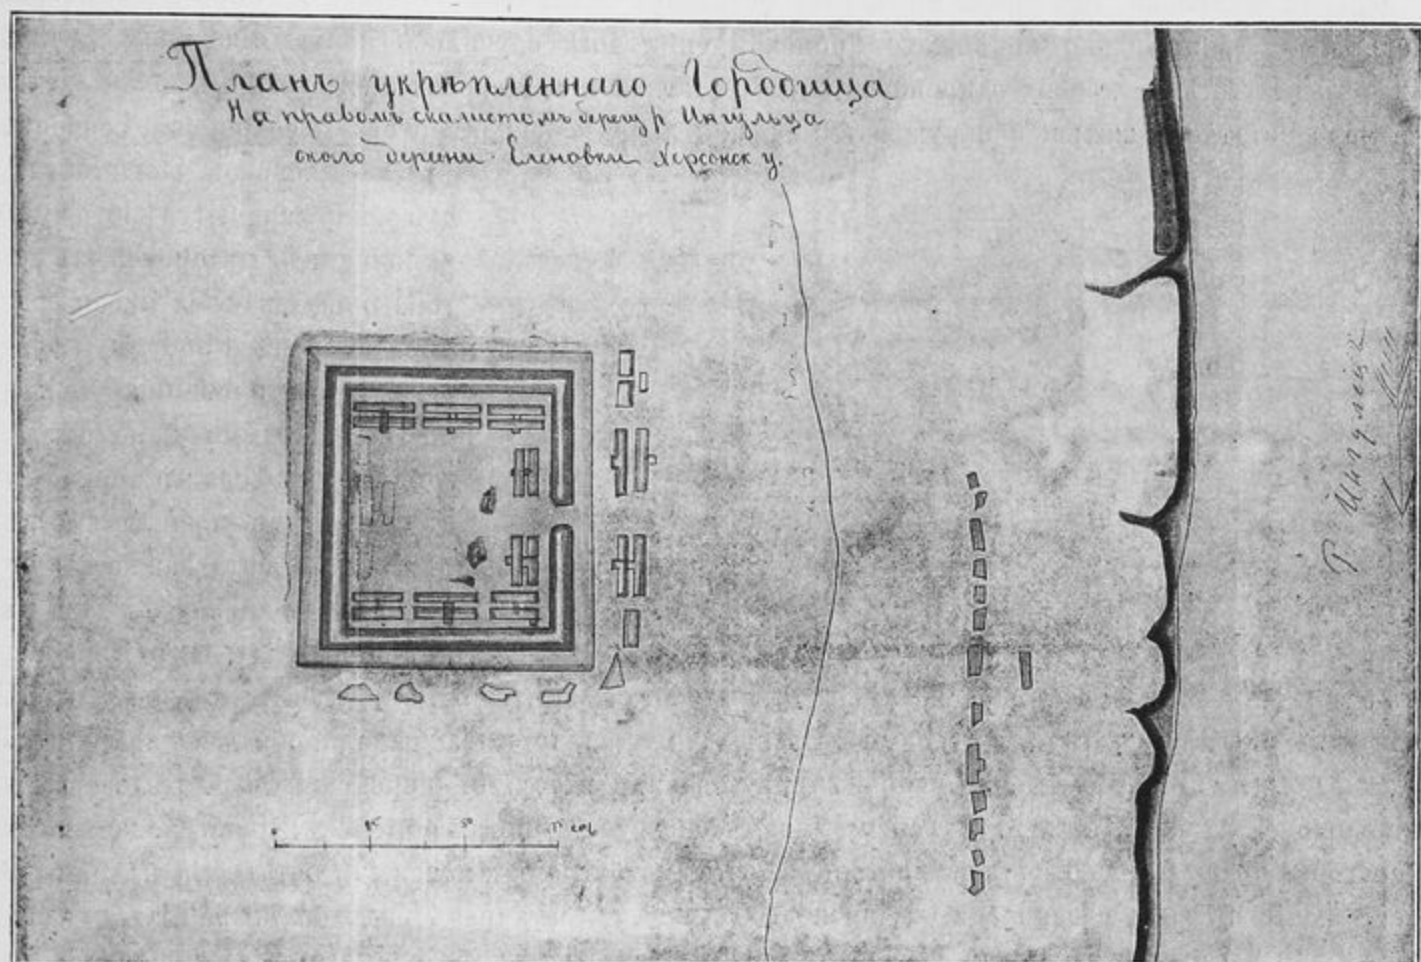 Планъ укрѣпленнаго Городища
На правомъ скалистомъ берегу р. Ингульца
около дерєвни Еленовки Херсонск у.
Р. Ингулецъ
0 25 50 75 саж